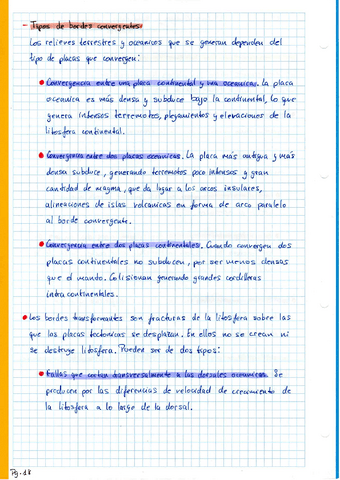 - Tipos de bordes convergentes
Los relieves terrestres y oceánicos que se generan dependen del
tipo de placas que convergen:
• Convergencia entre una placa continental y una oceánica. La placa
oceanica es más densa y subduce bajo la continental, lo que
genera intensos terremotos, plegamientos y elevaciones de la
litosfera continental.
• Convergencia entre dos placas oceanicas. La placa más antigua y más
densa subduce, generando terremotos poco intensos y gran
cantidad de magma, que da lugar a los arcos insulares,
alineaciones de islas volcanicas en forma de arco paralelo
al borde convergente.
• Convergencia entre dos placas continentales. Cuando convergen dos
placas continentales no subducen, por ser menos densas
que el manto. Colisionan generando grandes cordilleras
intracontinentales.
• Los bordes transformantes son fracturas de la litosfera sobre las
que las placas tectonicas se desplazan. En ellos no se crean ni
se destruye litosfera. Pueden ser de dos tipos:
• Fallas que cortan transversalmente a las dorsales oceanicas. Se
producen por las diferencias de velocidad de crecimiento de
la litosfera a lo largo de la dorsal.